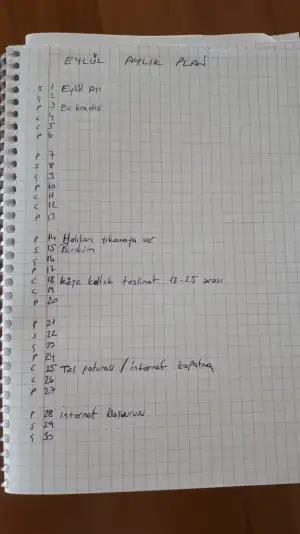 EYLÜL AYLIK PLAN
S 1 Eylül Ayı
Ç 2
P 3 Ev kredisi
C 4
C 5
P 6
P 7
S 8
Ç 9
P 10
C 11
C 12
P 13
P 14 Halıları yıkamaya ver
S 15 Birikim
Ç 16
P 17
C 18 köşe koltuk teslimat 18-25 arası
C 19
P 20
P 21
S 22
Ç 23
P 24
C 25 Tel faturası / internet kapatma
C 26
P 27
P 28 internet başvurusu
S 29
Ç 30